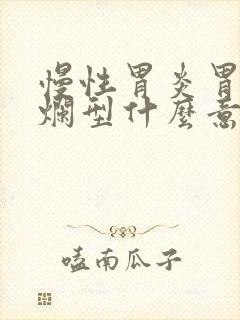 慢性胃炎胃
爛型什麼意
嗑南瓜子